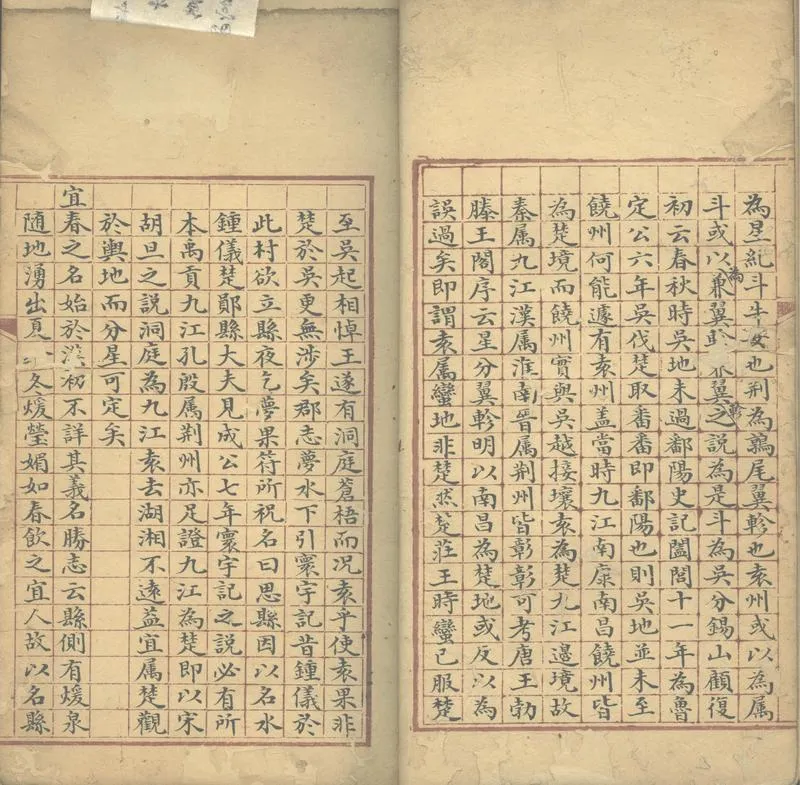 為星紀斗牛女也荆為鶉尾翼軫也袁州或以為属
斗或以為兼翼軫翼軫之說為是斗為吳分錫山顧復
初云春秋時吳地未過鄱陽史記闔閭十一年為魯
定公六年吳伐楚取番番即鄱陽也則吳地並未至
饒州何能遽有袁州盖當時九江南康南昌饒州皆
為楚境而饒州實與吳越接壤袁為楚九江邉境故
秦属九江漢属淮南晉属荆州皆彰彰可考唐王勃
滕王閣序云星分翼軫明以南昌為楚地或反以為
誤過矣即謂袁属蠻地非楚然楚莊王時蠻已服楚
至吳起相悼王遂有洞庭蒼梧而况袁乎使袁果非
楚於吳更無涉矣郡志夢水下引寰宇記昔鍾儀於
此村欲立縣夜乞夢果符所祝名曰思縣因以名水
鍾儀楚鄖縣大夫見成公七年寰宇記之說必有所
本禹貢九江孔殷属荆州亦足證九江為楚即以宋
胡旦之說洞庭為九江袁去湖湘不遠益宜属楚觀
於輿地而分星可定矣
宜春之名始於漢初不詳其義名勝志云縣側有煖泉
随地湧出夏冬煖瑩媚如春飲之宜人故以名縣